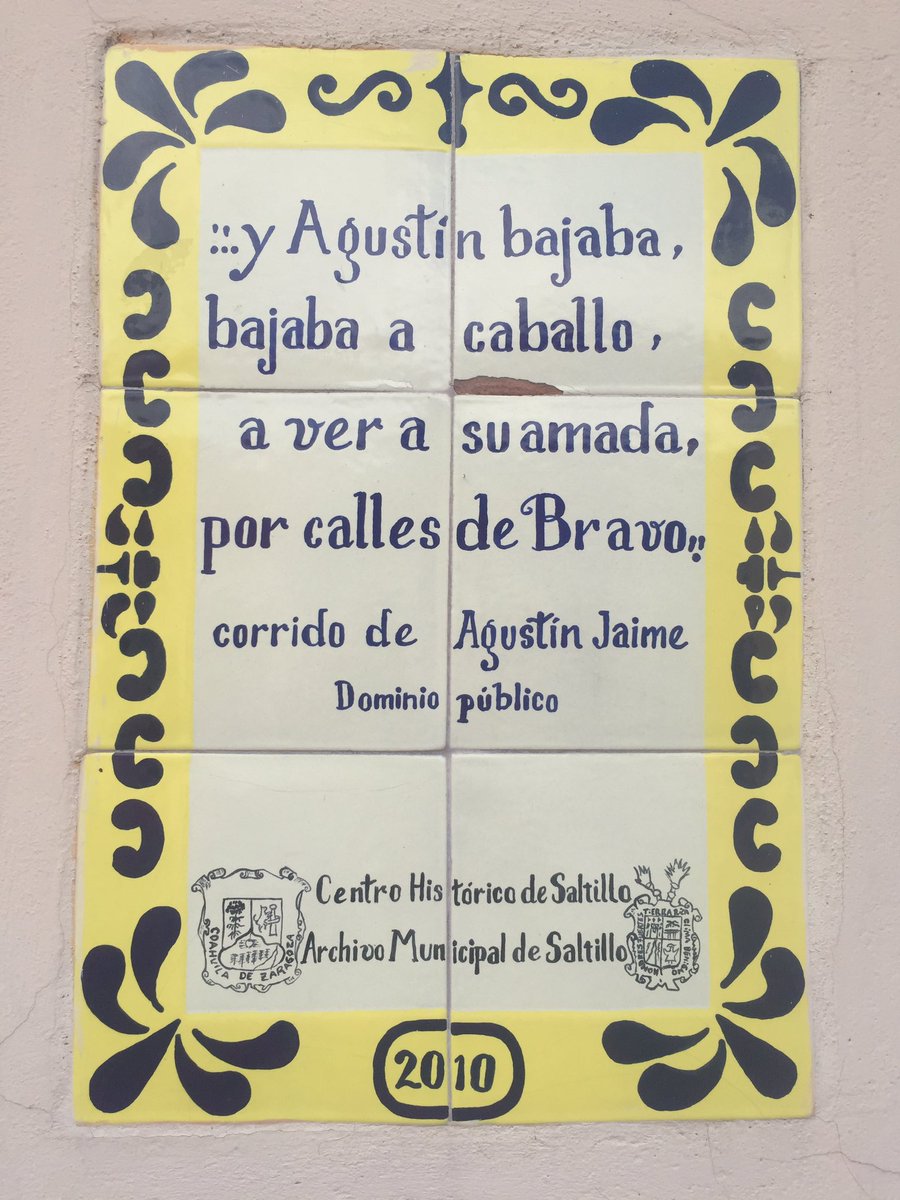 :::y Agustín bajaba,
bajaba a caballo,
a ver a su amada,
por calles de Bravo,,
corrido de Agustín Jaime
Dominio público
Centro Histórico de Saltillo
Archivo Municipal de Saltillo
COAHUILA DE ZARAGOZA
2010